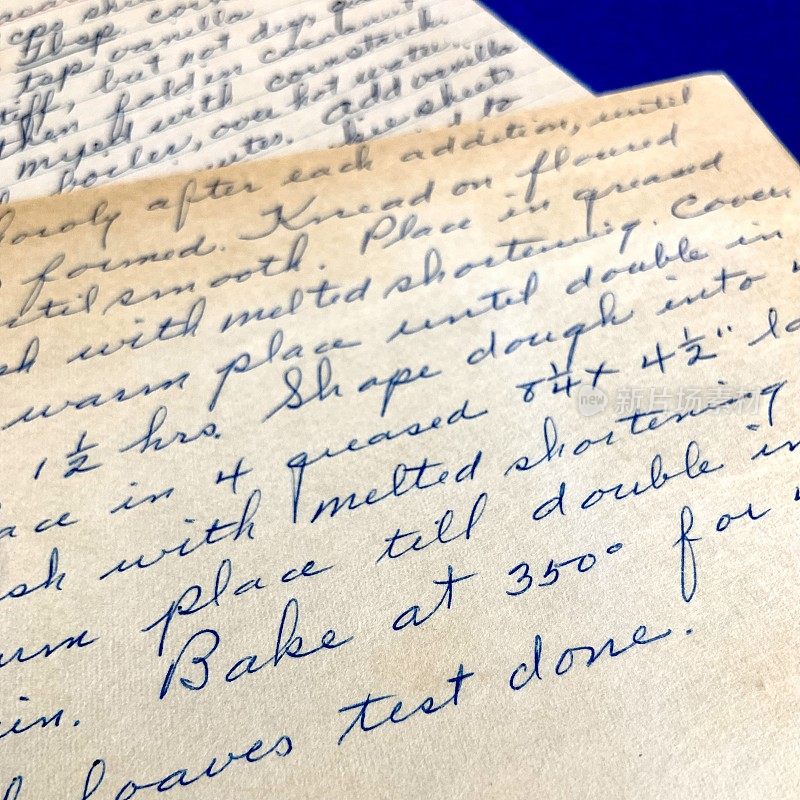 cps
tbsp. cor
tsp vanilla
tiff, but not dry,
then fold in cocoanut
myself with cornstarch
boiler, over hot water.
utes. Add vanilla
sheets
to
oroly after each addition, until
formed. Knead on floured
ntil smooth. Place in greased
sh with melted shortening. Cover
warm place until double in
1 1/2 hrs. Shape dough into
ace in 4 greased 8 1/4 x 4 1/2" lo
sh with melted shortening
arm place till double in
Bake at 350° for
in.
loaves test done.
new 新片场素材